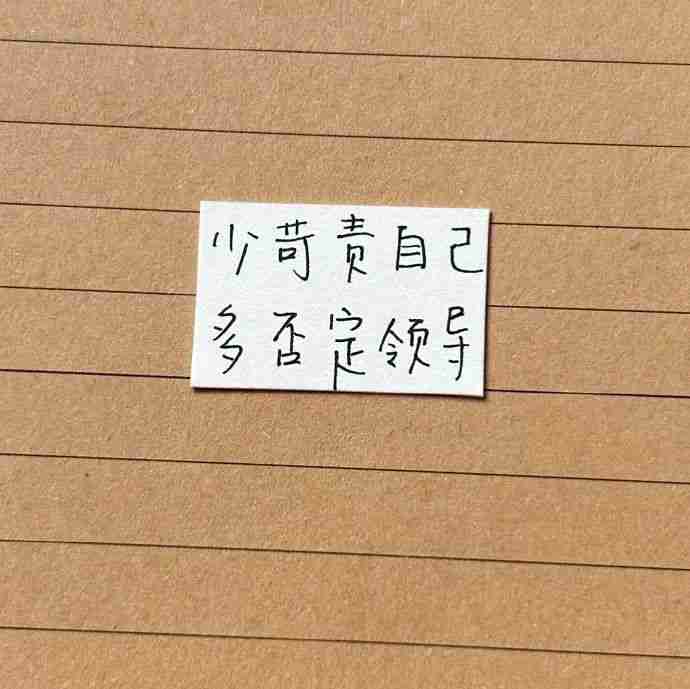 少苛责自己
多否定领导